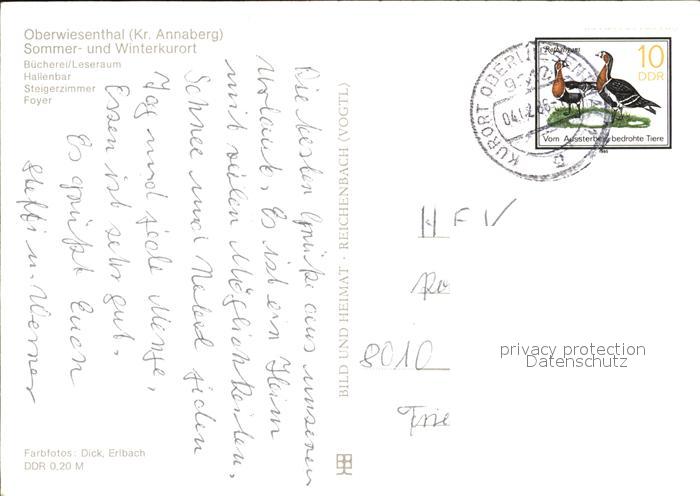 Oberwiesenthal (Kr. Annaberg)
Sommer- und Winterkurort
Bücherei/Leseraum
Hallenbar
Steigerzimmer
Foyer
Die besten Grüße aus unserem
Urlaub. Es ist ein Heim
mit vielen Möglichkeiten.
Schnee und Nebel jeden
Tag und jede Menge.
Essen ist sehr gut.
Es grüßt Euch
Steffi u. Werner
Farbfotos: Dick, Erlbach
DDR 0,20 M
BILD UND HEIMAT · REICHENBACH (VOGTL)
KURORT OBERWIESENTHAL
04.12.86
10
DDR
Vom Aussterben bedrohte Tiere
1985
HFV
8010
privacy protection
Datenschutz